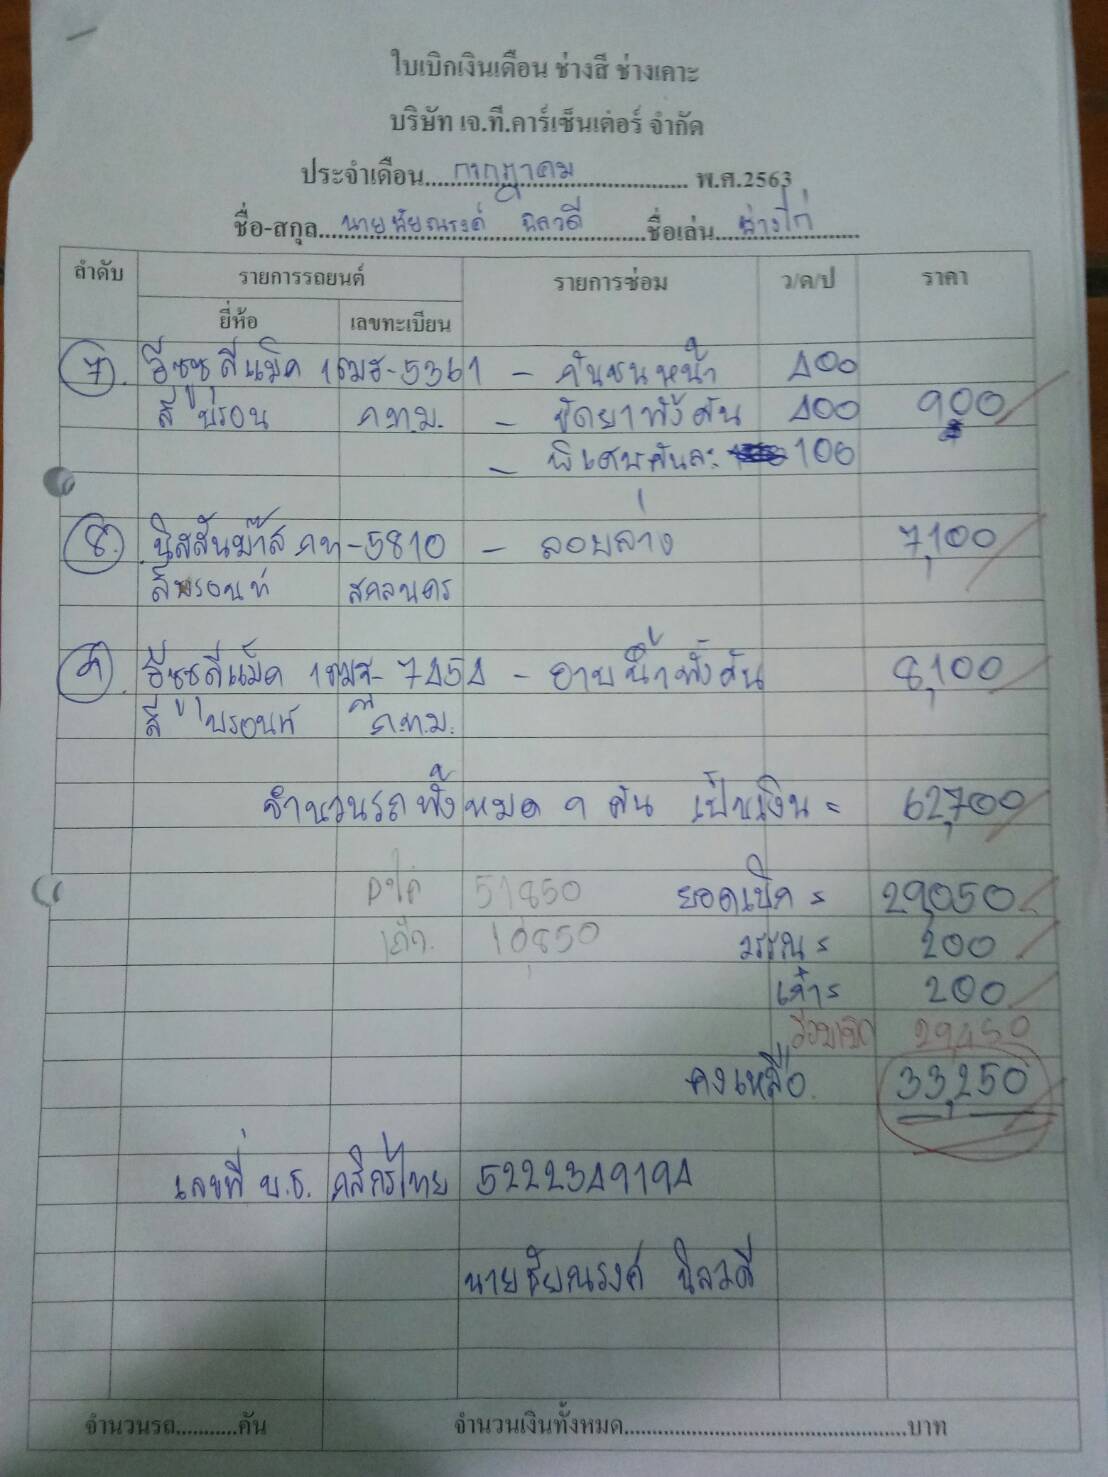 ใบเบิกเงินเดือน ช่างสี ช่างเคาะ
บริษัท เจ.ที.คาร์เซ็นเตอร์ จำกัด
ประจำเดือน....กรกฎาคม.... พ.ศ.2563
ชื่อ-สกุล....นายชัยณรงค์ นิลวดี....ชื่อเล่น....ช่างไก่....
ลำดับ รายการรถยนต์ รายการซ่อม ว/ด/ป ราคา
ยี่ห้อ เลขทะเบียน
7. อีซูซุดีแม็ค 1ฒฮ-5361 - กันชนหน้า 400
สีบรอน ก.ท.ม. - ขัดยาทั้งคัน 400 900
- พิเศษคันละ 100
8. นิสสันม๊าส กท-5810 - ลอบล่าง 7,100
สีบรอนท์ สกลนคร
9. อีซูซุดีแม็ค 1ฒฮ-7454 - อาบน้ำทั้งคัน 8,100
สีบรอนท์ ก.ท.ม.
จำนวนรถทั้งหมด 9 คัน เป็นเงิน = 62,700
51850 ยอดเบิก = 29,050
10,850 = 200
= 200
รวมเบิก 29,450
คงเหลือ 33,250
เลขที่ บ.ช. กสิกรไทย 5222349194
นายชัยณรงค์ นิลวดี
จำนวนรถ...........คัน จำนวนเงินทั้งหมด................................................บาท